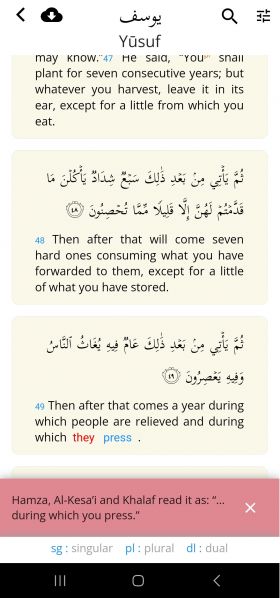 يوسف
Yūsuf
may know."47 He said, "Youpl shall
plant for seven consecutive years; but
whatever you harvest, leave it in its
ear, except for a little from which you
eat.
ثُمَّ يَأۡتِي مِنۢ بَعۡدِ ذَٰلِكَ سَبۡعٞ شِدَادٞ يَأۡكُلۡنَ مَا
قَدَّمۡتُمۡ لَهُنَّ إِلَّا قَلِيلٗا مِّمَّا تُحۡصِنُونَ ٤٨
48 Then after that will come seven
hard ones consuming what you have
forwarded to them, except for a little
of what you have stored.
ثُمَّ يَأۡتِي مِنۢ بَعۡدِ ذَٰلِكَ عَامٞ فِيهِ يُغَاثُ ٱلنَّاسُ
وَفِيهِ يَعۡصِرُونَ ٤٩
49 Then after that comes a year during
which people are relieved and during
which they press .
Hamza, Al-Kesa'i and Khalaf read it as: "...
during which you press."
sg : singular pl : plural dl : dual